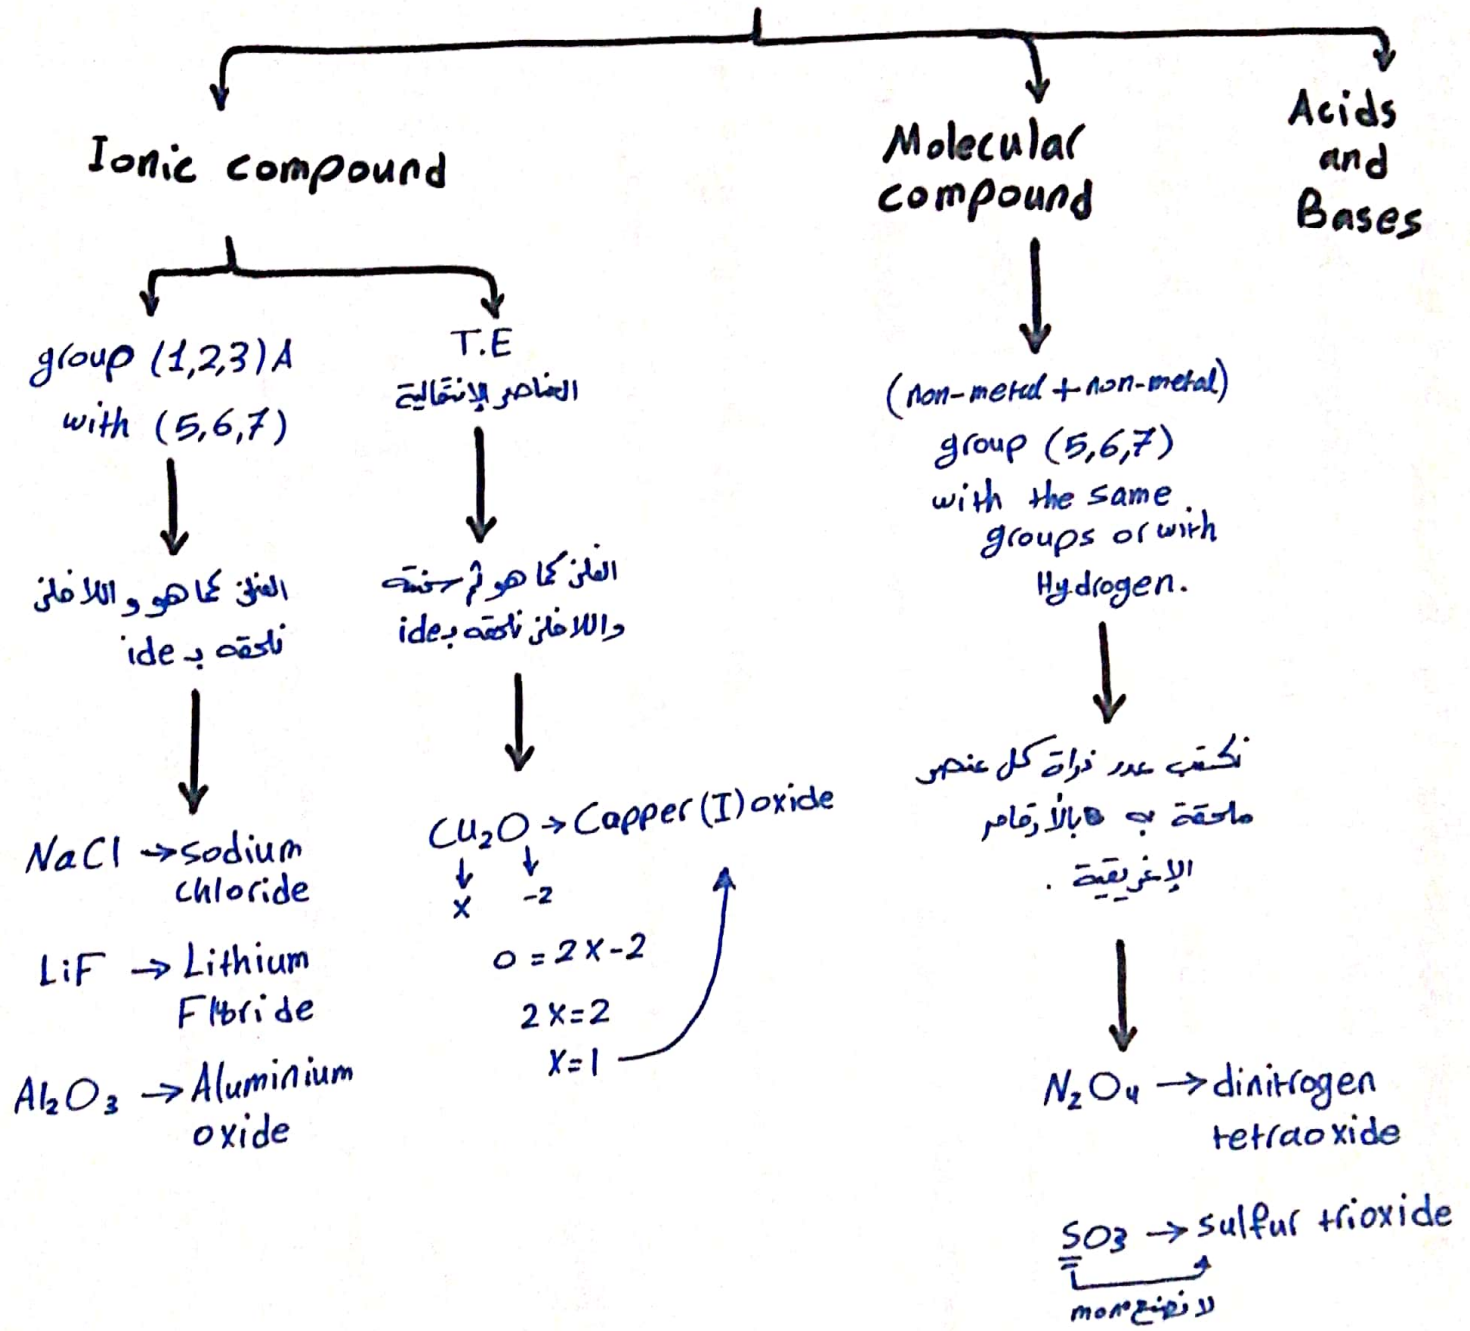 Ionic compound
group (1,2,3) A
with (5,6,7)
الفلز كما هو و اللا فلز
نلحقه بـ ide
NaCl → sodium
chloride
LiF → Lithium
Floride
Al₂O₃ → Aluminium
oxide
T.E
العناصر الإنتقالية
الفلز كما هو ثم شحنته
واللا فلز نلحقه بـ ide
Cu₂O → Capper (I) oxide
x -2
0 = 2x-2
2x=2
x=1
Molecular
compound
(non-metal + non-metal)
group (5,6,7)
with the same
groups or with
Hydrogen.
نكتب عدد ذراة كل عنصر
ملحقة به بالأرقام
الإغريقية .
N₂O₄ → dinitrogen
tetraoxide
SO₃ → sulfur trioxide
لا نضع mono
Acids
and
Bases